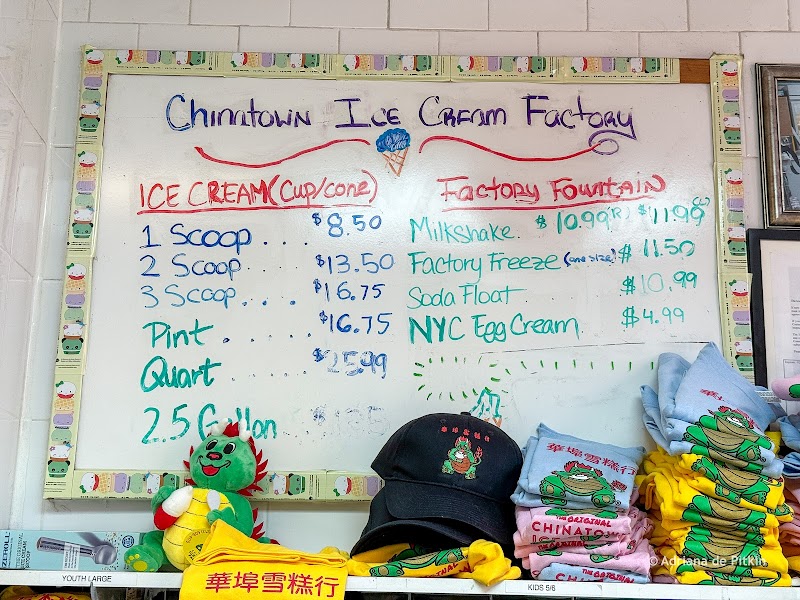 Chinatown Ice Cream Factory
ICE CREAM (Cup/cone)
1 Scoop . . . . $8.50
2 Scoop . . . $13.50
3 Scoop . . . . $16.75
Pint . . . . . . $16.75
Quart . . . . . . $25.99
2.5 Gallon
Factory Fountain
Milkshake. $10.99(R) $11.99(L)
Factory Freeze (one size) $11.50
Soda Float $10.99
NYC Egg Cream $4.99
ZEROLL
YOUTH LARGE
華埠雪糕行
華埠雪糕行
KIDS 5/6
華埠雪糕行
THE ORIGINAL
CHINATOWN
ICE CREAM
THE ORIGINAL
THE ORIGINAL
華埠雪
© Adriana de Pitklin